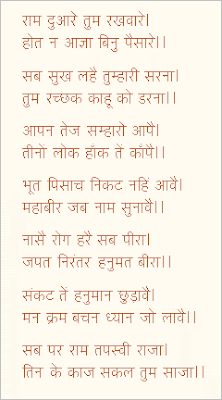 राम दुआरे तुम रखवारे।
होत न आज्ञा बिनु पैसारे।।
सब सुख लहै तुम्हारी सरना।
तुम रच्छक काहू को डरना।।
आपन तेज सम्हारो आपै।
तीनों लोक हाँक तें काँपै।।
भूत पिसाच निकट नहिं आवै।
महाबीर जब नाम सुनावै।।
नासै रोग हरै सब पीरा।
जपत निरंतर हनुमत बीरा।।
संकट तें हनुमान छुड़ावै।
मन क्रम बचन ध्यान जो लावै।।
सब पर राम तपस्वी राजा।
तिन के काज सकल तुम साजा।।